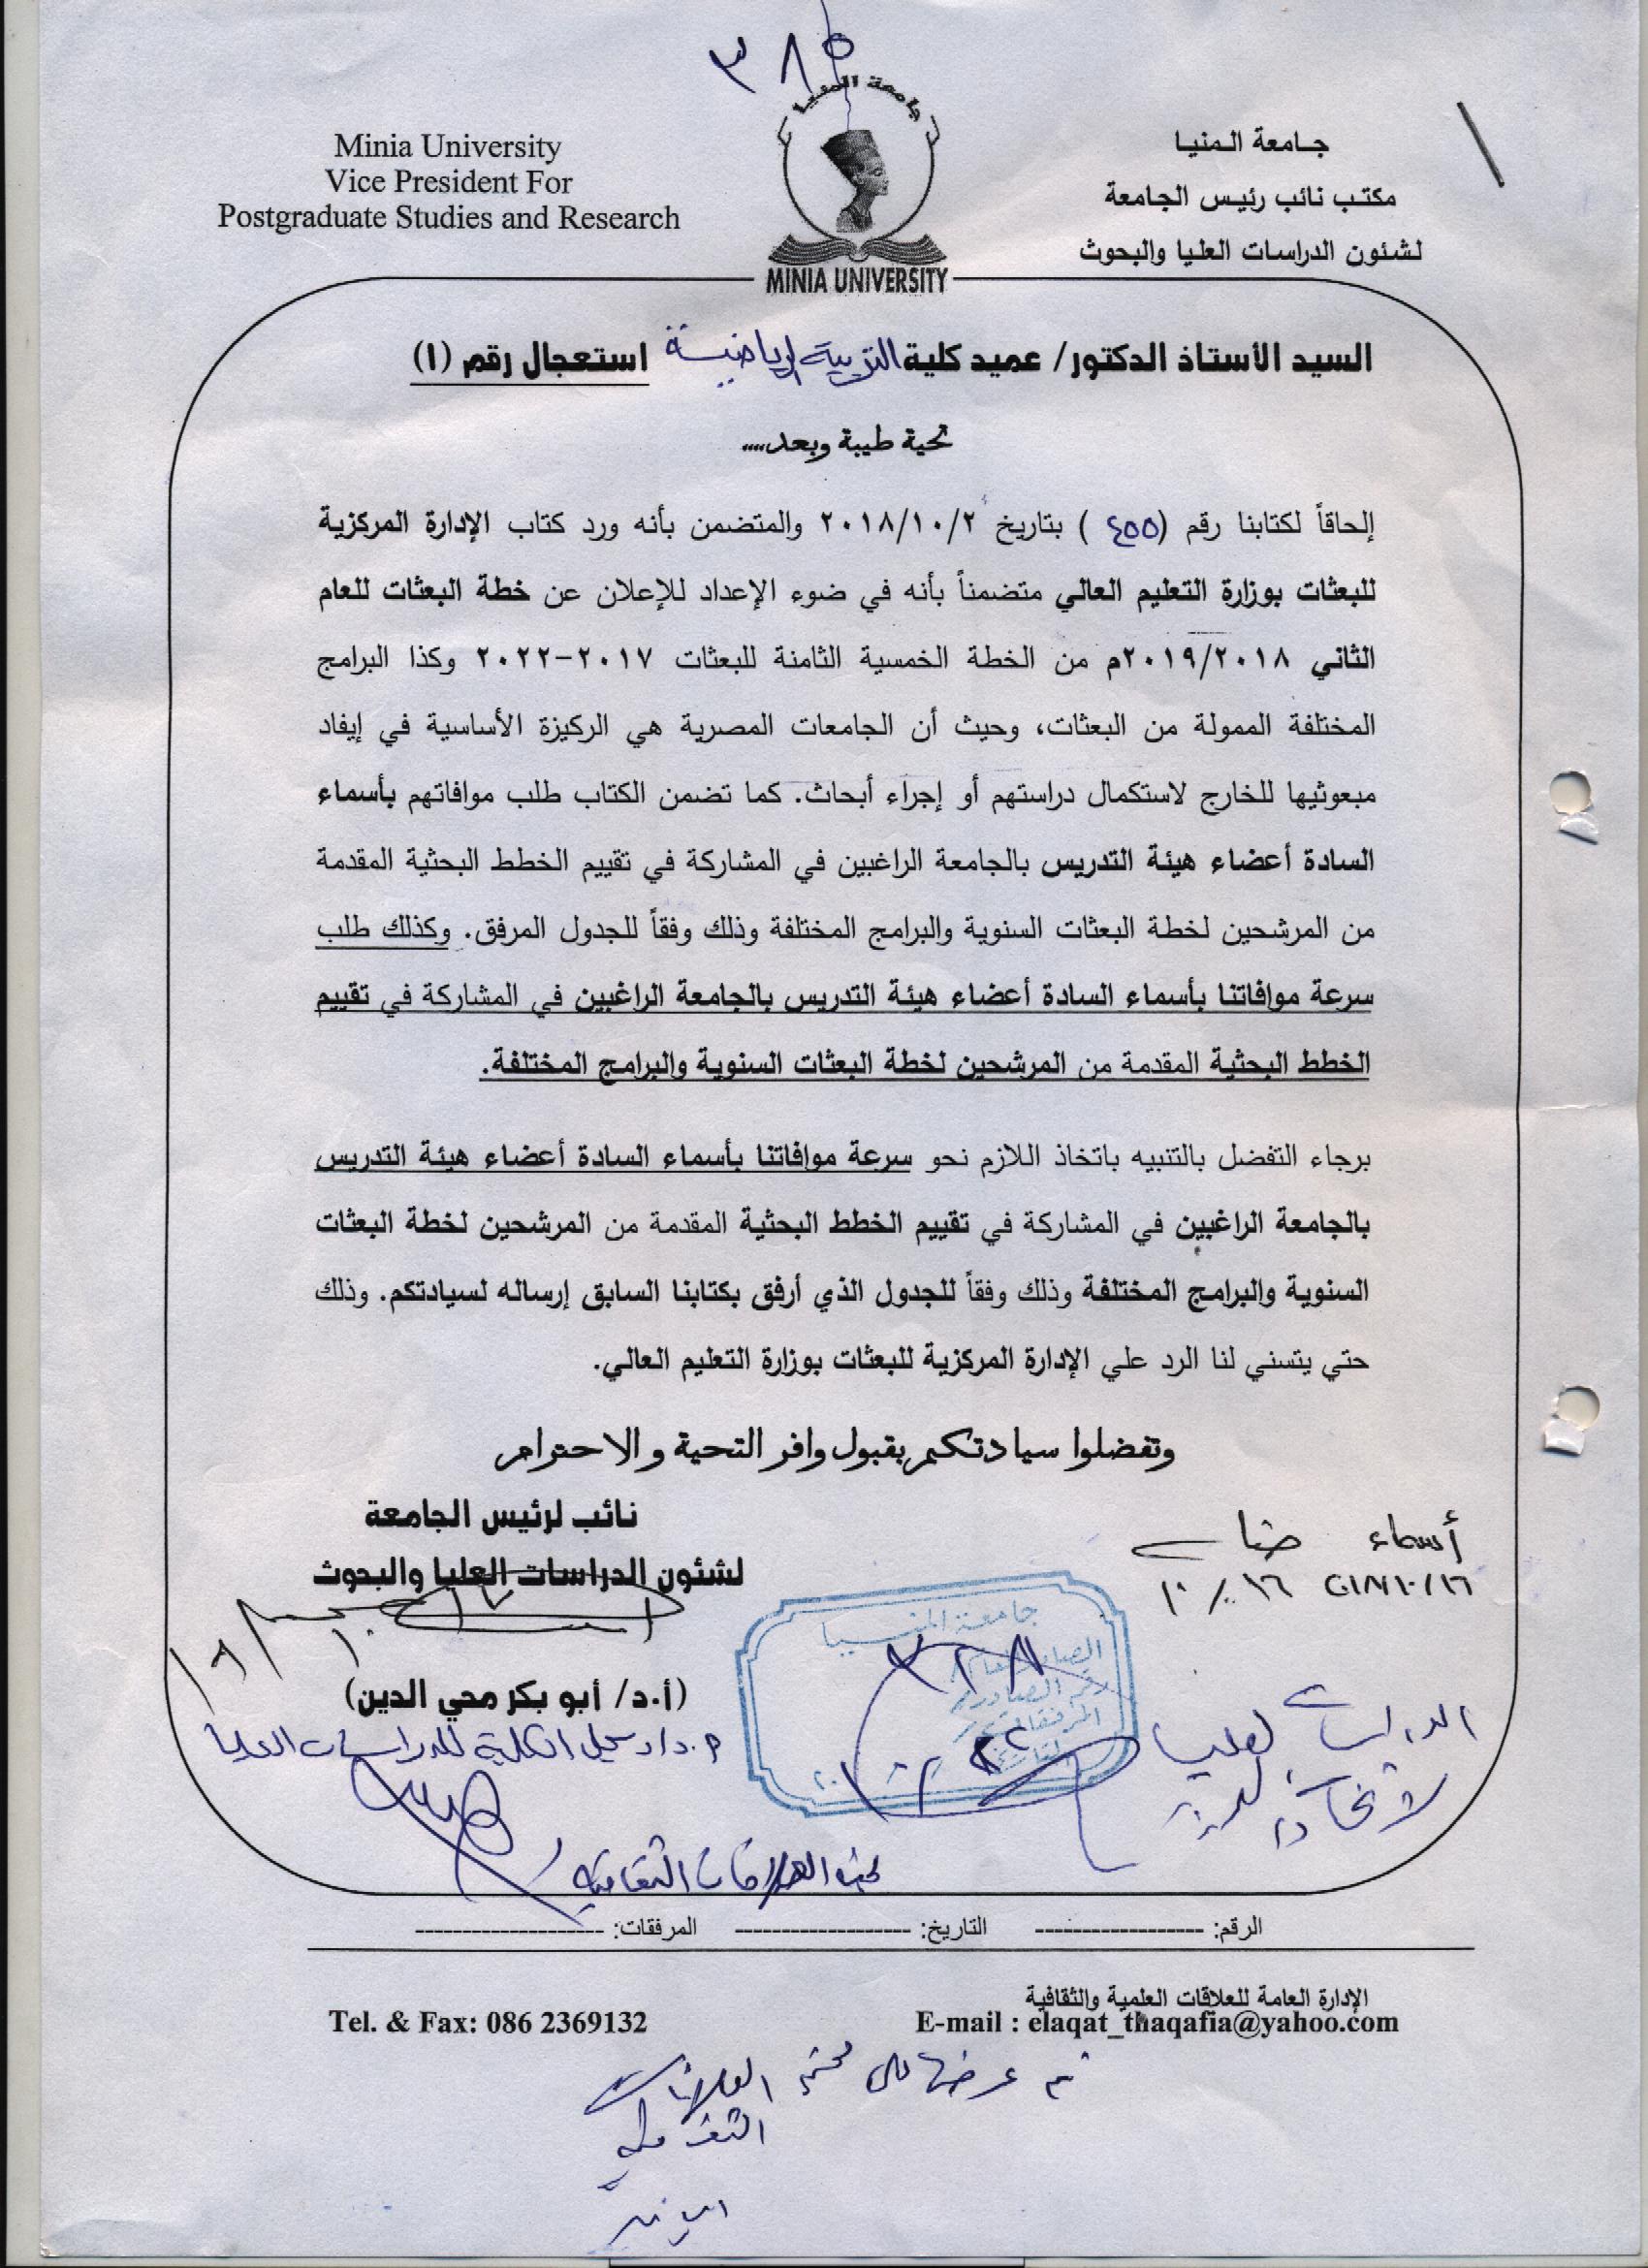 ٣٨٥
Minia University
Vice President For
Postgraduate Studies and Research
جامعة المنيا
MINIA UNIVERSITY
جامعة المنيا
مكتب نائب رئيس الجامعة
لشئون الدراسات العليا والبحوث
السيد الأستاذ الدكتور/ عميد كلية التربية الرياضية استعجال رقم (١)
تحية طيبة وبعد....
إلحاقاً لكتابنا رقم (٤٥٥ ) بتاريخ ٢٠١٨/١٠/٢ والمتضمن بأنه ورد كتاب الإدارة المركزية
للبعثات بوزارة التعليم العالي متضمناً بأنه في ضوء الإعداد للإعلان عن خطة البعثات للعام
الثاني ٢٠١٩/٢٠١٨م من الخطة الخمسية الثامنة للبعثات ٢٠١٧-٢٠٢٢ وكذا البرامج
المختلفة الممولة من البعثات، وحيث أن الجامعات المصرية هي الركيزة الأساسية في إيفاد
مبعوثيها للخارج لاستكمال دراستهم أو إجراء أبحاث. كما تضمن الكتاب طلب موافاتهم بأسماء
السادة أعضاء هيئة التدريس بالجامعة الراغبين في المشاركة في تقييم الخطط البحثية المقدمة
من المرشحين لخطة البعثات السنوية والبرامج المختلفة وذلك وفقاً للجدول المرفق. وكذلك طلب
سرعة موافاتنا بأسماء السادة أعضاء هيئة التدريس بالجامعة الراغبين في المشاركة في تقييم
الخطط البحثية المقدمة من المرشحين لخطة البعثات السنوية والبرامج المختلفة.
برجاء التفضل بالتنبيه باتخاذ اللازم نحو سرعة موافاتنا بأسماء السادة أعضاء هيئة التدريس
بالجامعة الراغبين في المشاركة في تقييم الخطط البحثية المقدمة من المرشحين لخطة البعثات
السنوية والبرامج المختلفة وذلك وفقاً للجدول الذي أرفق بكتابنا السابق إرساله لسيادتكم. وذلك
حتي يتسني لنا الرد علي الإدارة المركزية للبعثات بوزارة التعليم العالي.
وتفضلوا سيادتكم بقبول وافر التحية والاحترام
نائب لرئيس الجامعة
لشئون الدراسات العليا والبحوث
(أ.د/ أبو بكر محي الدين)
أسماء
٢٠١٨/١٠/١٦
جامعة المنيا
الدراسات العليا
أ.د/ وكيل الكلية للدراسات العليا
لجنة العلاقات الثقافية
الرقم: ------------------ التاريخ: ------------------ المرفقات: ------------------
الإدارة العامة للعلاقات العلمية والثقافية
Tel. & Fax: 086 2369132 E-mail : elaqat_thaqafia@yahoo.com
تم عرضها على لجنة العلاقات
الثقافية